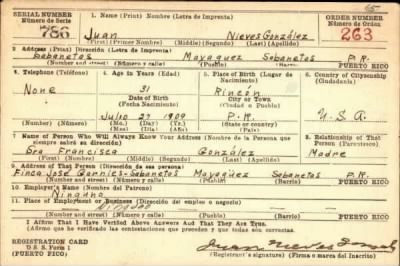 65
SERIAL NUMBER 1. Name (Print) Nombre (Letra de Imprenta) ORDER NUMBER
Número de Serie Número de Orden
786 Juan Nieves González 263
(First) (Primer Nombre) (Middle) (Segundo) (Last) (Apellido)
2 Address (Print) Dirección (Letra de Imprenta)
Sabanetas Mayaguez Sabanetas P.R.
Number and street (Número y calle) (Town) (Pueblo) (Barrio) PUERTO RICO
3. Telephone (Teléfono) 4. Age in Years (Edad) 5. Place of Birth (Lugar de Nacimiento) 6. Country of Citizenship (Ciudadanía)
None 31 Rincón
Date of Birth City or Town
(Fecha Nacimiento) (Ciudad o Pueblo)
Julio 27 1909 P.R. U.S.A
(Number) (Número) (Mo.) (Mes) (Day) (Día) (Yr.) (Año) (State or country) (País)
7 Name of Person Who Will Always Know Your Address (Nombre de la Persona que siempre sabrá su dirección) 8. Relationship of That Person (Parentesco)
Sra Francisca González Madre
(First) (Nombre) (Middle) (Segundo) (Last) (Apellido)
9 Address of That Person (Dirección de esa persona)
Finca José Sabanetas Mayagüez Sabanetas P.R.
Number and street (Número y calle) (Town) (Pueblo) (Barrio) PUERTO RICO
10 Employer's Name (Nombre del Patrono)
Ninguno
11 Place of Employment or Business (Lugar donde trabaja)
Ninguno
(Number and street) (Número y calle) (Town) (Pueblo) (Barrio) PUERTO RICO
I Affirm That I Have Verified Above Answers And That They Are True.
Afirmo que he verificado las contestaciones que preceden y que todas son ciertas.
REGISTRATION CARD
D S S Form 1
(PUERTO RICO)
Juan Nieves Gonzalez
(Registrant's signature) (Firma o marca del Inscrito)